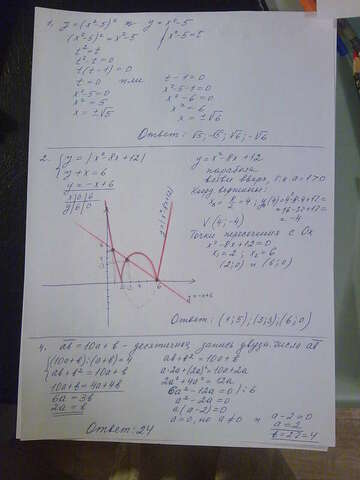 1. y=(x²-5)² и y=x²-5
(x²-5)²=x²-5 | x²-5=t
t²=t
t²-t=0
t(t-1)=0
t=0 или t-1=0
x²-5=0 x²-5-1=0
x²=5 x²-6=0
x=±√5 x²=6
x=±√6
Ответ: √5; -√5; √6; -√6
2. { y=|x²-8x+12| y=x²-8x+12
y+x=6 парабола
y=-x+6 ветви вверх, т.к a=1>0
x|0|6 Коорд вершины:
y|6|0 x₀=8/2=4; y(4)=4²-8·4+12=
=16-32+12=
=-4
V(4;-4)
Точки пересечения с Ox
x²-8x+12=0
x₁=2; x₂=6
(2;0) и (6;0)
y=|x²-8x+12|
y=-x+6
Ответ: (1;5); (3;3); (6;0)
4. ab=10a+b - десятичная запись двузн. числа ab
{ (10a+b):(a+b)=4 ab+b²=10a+b
ab+b²=10a+b a·2a+(2a)²=10a+2a
10a+b=4a+4b 2a²+4a²=12a
6a=3b 6a²-12a=0 |:6
2a=b a²-2a=0
a(a-2)=0
a=0, но a≠0 и a-2=0
a=2
b=2·2=4
Ответ: 24